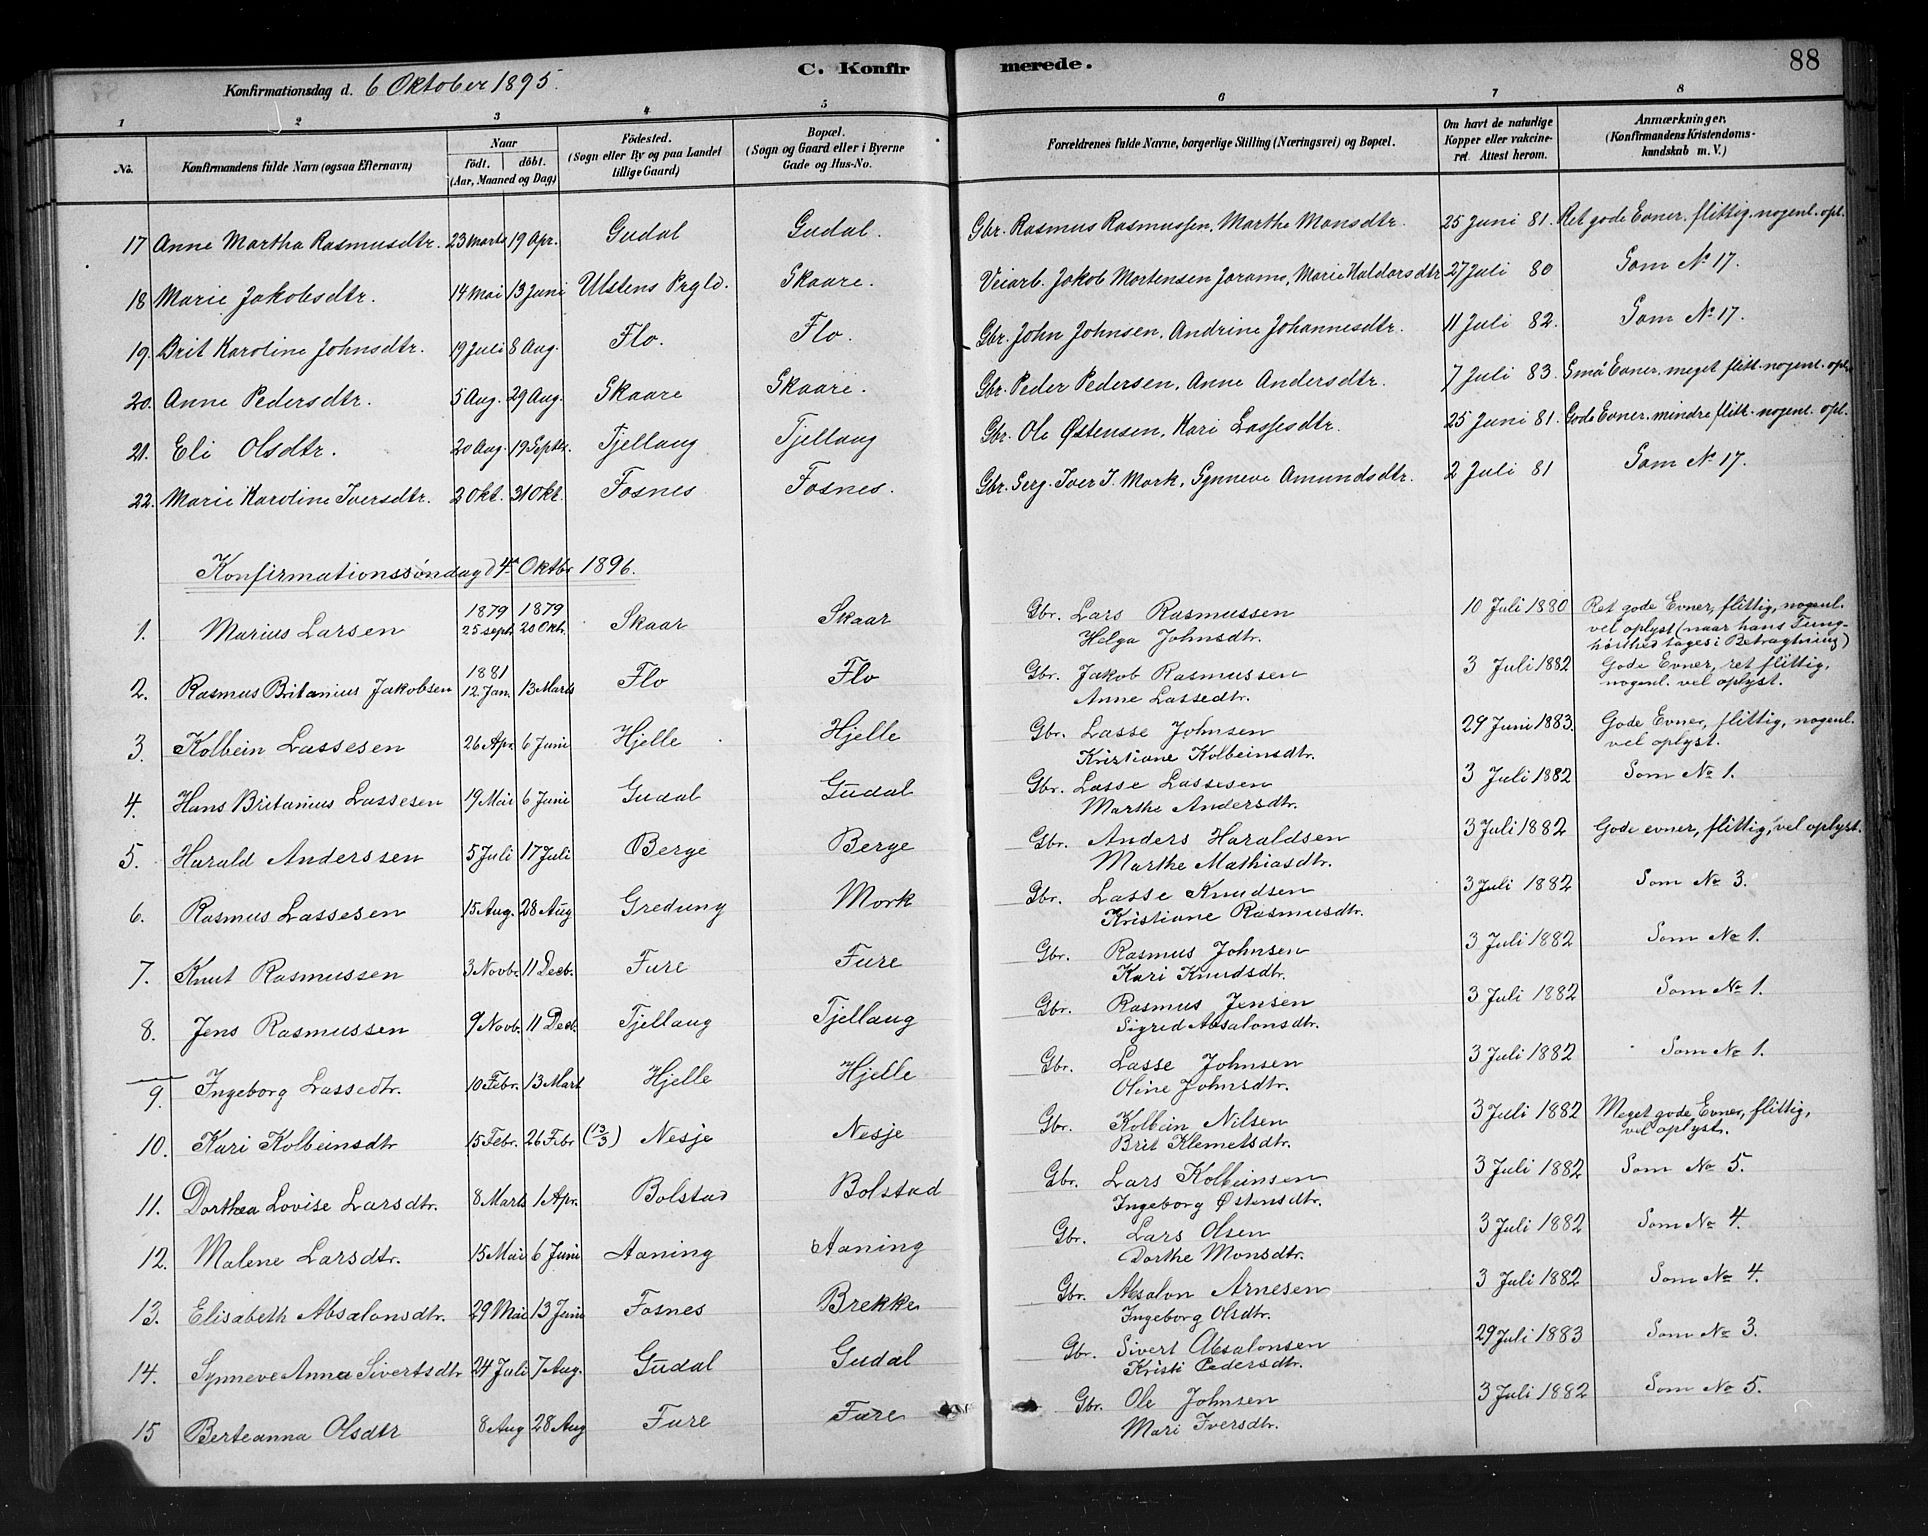 C. Konfirmerede. 88
Konfirmationsdag d. 6 Oktober 1895.
1 2 3 4 5 6 7 8
No. Konfirmandens fulde Navn (ogsaa Efternavn) Naar født. døbt. (Aar, Maaned og Dag) Födested. (Sogn eller By og paa Landet tillige Gaard) Bopæl. (Sogn og Gaard eller i Byerne Gade og Hus-No. Forældrenes fulde Navne, borgerlige Stilling (Næringsvei) og Bopæl. Om havt de naturlige Kopper eller vakcineret. Attest herom. Anmærkninger. (Konfirmandens Kristendomskundskab m. V.)
17 Anne Martha Rasmusdtr. 23 Marts 19 Apr. Gudal Gudal. Gbr. Rasmus Rasmussen, Martha Monsdtr. 25 Juni 81. Ret gode Evner. flittig. nogenl. opl.
18 Marie Jakobsdtr. 14 Mai 13 Juni Ulstens Prgld. Skaare. Veiarb. Jakob Mortensen Jarame, Marie Haldorsdtr 27 Juli 80 Som No 17.
19. Brit Karoline Johnsdtr. 19 Juli 8 Aug. Flo. Flo. Gbr. John Johnsen, Andrine Johannesdtr. 11 Juli 82. Som No 17.
20. Anne Pedersdtr. 5 Aug. 29 Aug. Skaare Skaare. Gbr. Peder Pedersen, Anne Andersdtr. 7 Juli 83. Små Evner. meget flitt. nogenl. opl.
21. Eli Olsdtr. 20 Aug. 19 Septr. Tjellaug Tjellaug Gbr. Ole Østensen, Kari Lassesdtr. 25 Juni 81. Gode Evner. mindre flitt. nogenl. opl.
22. Marie Karoline Iversdtr. 2 Okt. 31 Okt. Fosnes Fosnes. Gbr. Serg. Iver I. Mork, Synneve Amundsdtr. 2 Juli 81 Som No 17.
Konfirmationssøndag d 4de Oktbr 1896.
1. Marius Larsen 1879 25 sept. 1879 20 Oktr. Skaar Skaar Gbr. Lars Rasmussen Helga Johnsdtr. 10 Juli 1880 Ret gode Evner, flittig, nogenl. vel oplyst (naar hans Tunghørthed tages i Betragtning)
2. Rasmus Britanius Jakobsen 1881 12 Jan. 13 Marts Flo Flo Gbr. Jakob Rasmussen Anne Lassedtr. 3 Juli 1882 Gode Evner, ret flittig, nogenl. vel oplyst.
3. Kolbein Lassesen 26 Apr. 6 Juni Hjelle Hjelle Gbr. Lasse Johnsen Kristiane Kolbeinsdtr. 29 Juni 1883. Gode Evner, flittig, nogenl. vel oplyst.
4. Hans Britanius Lassesen 19 Mai 6 Juni Gudal Gudal Gbr. Lasse Lassesen Marthe Andersdtr. 3 Juli 1882 Som No 1.
5. Harald Anderssen 5 Juli 17 Juli Berge Berge Gbr. Anders Haraldsen Marthe Mathiasdtr. 3 Juli 1882 Gode evner, flittig, vel oplyst.
6. Rasmus Lassesen 15 Aug. 28 Aug Gredung Mork Gbr. Lasse Knudsen Kristiane Rasmusdtr. 3 Juli 1882 Som No 3.
7. Knut Rasmussen 3 Novb. 11 Decb. Fure Fure Gbr. Rasmus Johnsen Kari Knudsdtr. 3 Juli 1882 Som No 1.
8. Jens Rasmussen 9 Novb. 11 Decb. Tjellaug Tjellaug Gbr. Rasmus Jensen Sigrid Absalonsdtr. 3 Juli 1882 Som No 1.
9. Ingeborg Lassedtr. 10 Febr. 13 Mart Hjelle Hjelle Gbr. Lasse Johnsen Oline Johnsdtr. 3 Juli 1882 Som No 1.
10. Kari Kolbeinsdtr 15 Febr. 26 Febr (13/3) Nesje Nesje Gbr. Kolbein Nilsen Brit Klemetsdtr. 3 Juli 1882 Meget gode Evner, flittig, vel oplyst.
11. Dorthea Lovise Larsdtr. 8 Marts 1 Apr. Bolstad Bolstad Gbr. Lars Kolbeinsen Ingeborg Østensdtr. 3 Juli 1882 Som No 5.
12. Malene Larsdtr. 15 Mai 6 Juni Aaning Aaning Gbr. Lars Olsen Dorthe Monsdtr. 3 Juli 1882 Som No 4.
13. Elisabeth Absalonsdtr. 29 Mai 13 Juni Fosnes Brekke Gbr. Absalon Arnesen Ingeborg Olsdtr. 3 Juli 1882 Som No 4.
14. Synneve Anna Sivertsdtr 24 Juli 7 Aug. Gudal Gudal Gbr. Sivert Absalonsen Kristi Pedersdtr. 29 Juli 1883 Som No 3.
15 Berteanna Olsdtr 8 Aug 28 Aug Fure Fure Gbr. Ole Johnsen Mari Iversdtr. 3 Juli 1882 Som No 5.